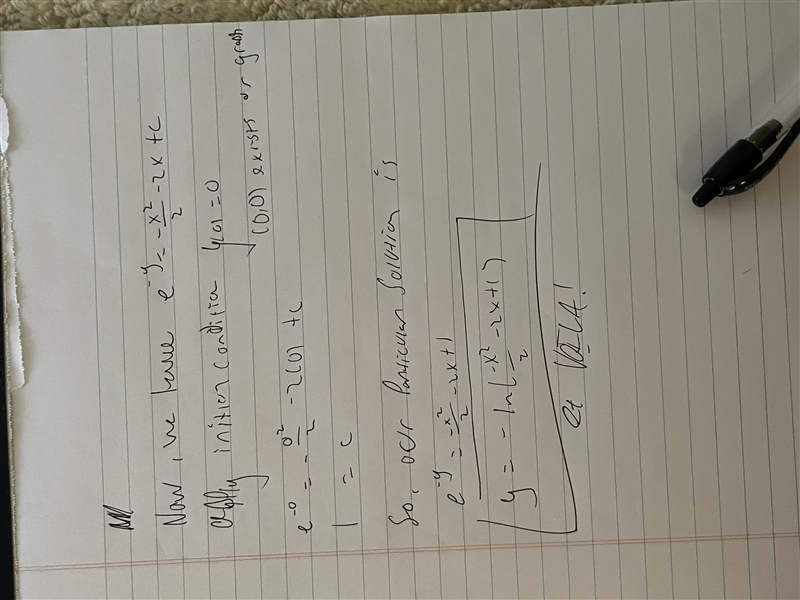 Now, we have e^-y = -x²/2 - 2x + c
apply initial condition y(0) = 0
(0,0) exists on graph
e^-0 = -0²/2 - 2(0) + c
1 = c
So, our Particular Solution is
e^-y = -x²/2 - 2x + 1
y = -ln(-x²/2 - 2x + 1)
VOILA!